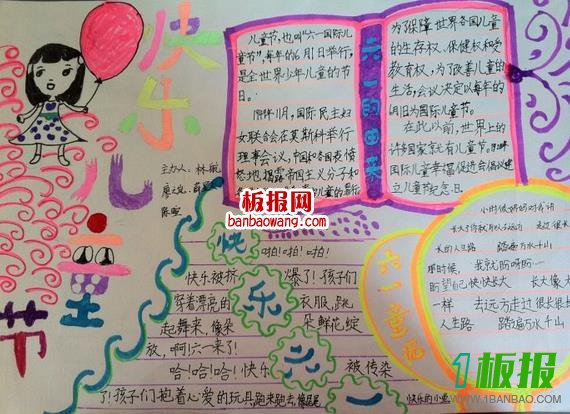 快乐儿童节
主办人：林
陈
六一的由来
儿童节，也叫“六一国际儿
童节”，每年的6月1日举行，
是全世界少年儿童的节
日。
1949年11月，国际民主妇
女联合会在莫斯科举行
理事会议，中国和各国表愤
怒地揭露帝国主义分子和
为了保障世界各国儿童
的生存权、保健权和受
教育权，为了改善儿童的
生活，会议决定以每年的
6月1日为国际儿童节。
在此以前，世界上的
许多国家就有儿童节。
国际儿童幸福促进会倡议建
立儿童节纪念日。
板报网
banbaowang.com
快乐六一
啪！啪！啪！
快乐被挤 爆了！孩子们
穿着漂亮的 衣服，跳
起舞来，像朵 朵鲜花，绽
放，啊！六一来了！
哈！哈！哈！快乐 被传染
了！孩子们抱着心爱的玩具，跑来跑去像
快乐的小鱼
六一童谣
小时候妈妈对我讲
长的人生路 踏遍万水千山
那时候，我就盼呀盼
盼望自己快快长大 长大像大
一样 去远方走过很长很
人生路 踏遍万水千山
1板报
WWW.1BANBAO.COM